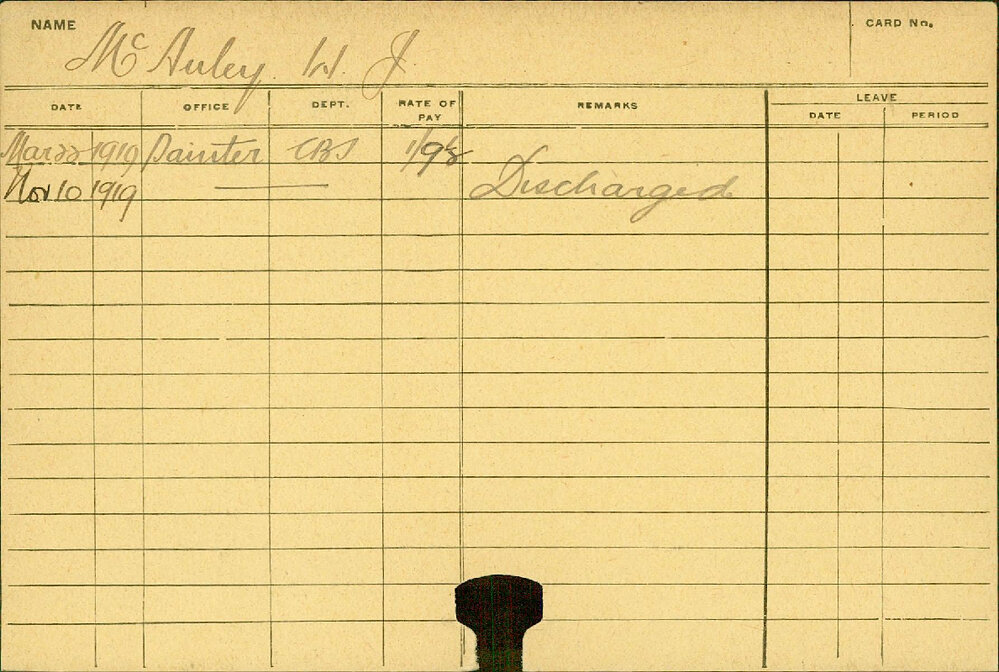 NAME McAuley W. J. CARD No.
DATE OFFICE DEPT. RATE OF PAY REMARKS LEAVE
DATE PERIOD
Mar 22 1919 Painter CBS
Nov 10 1919 —— Discharged